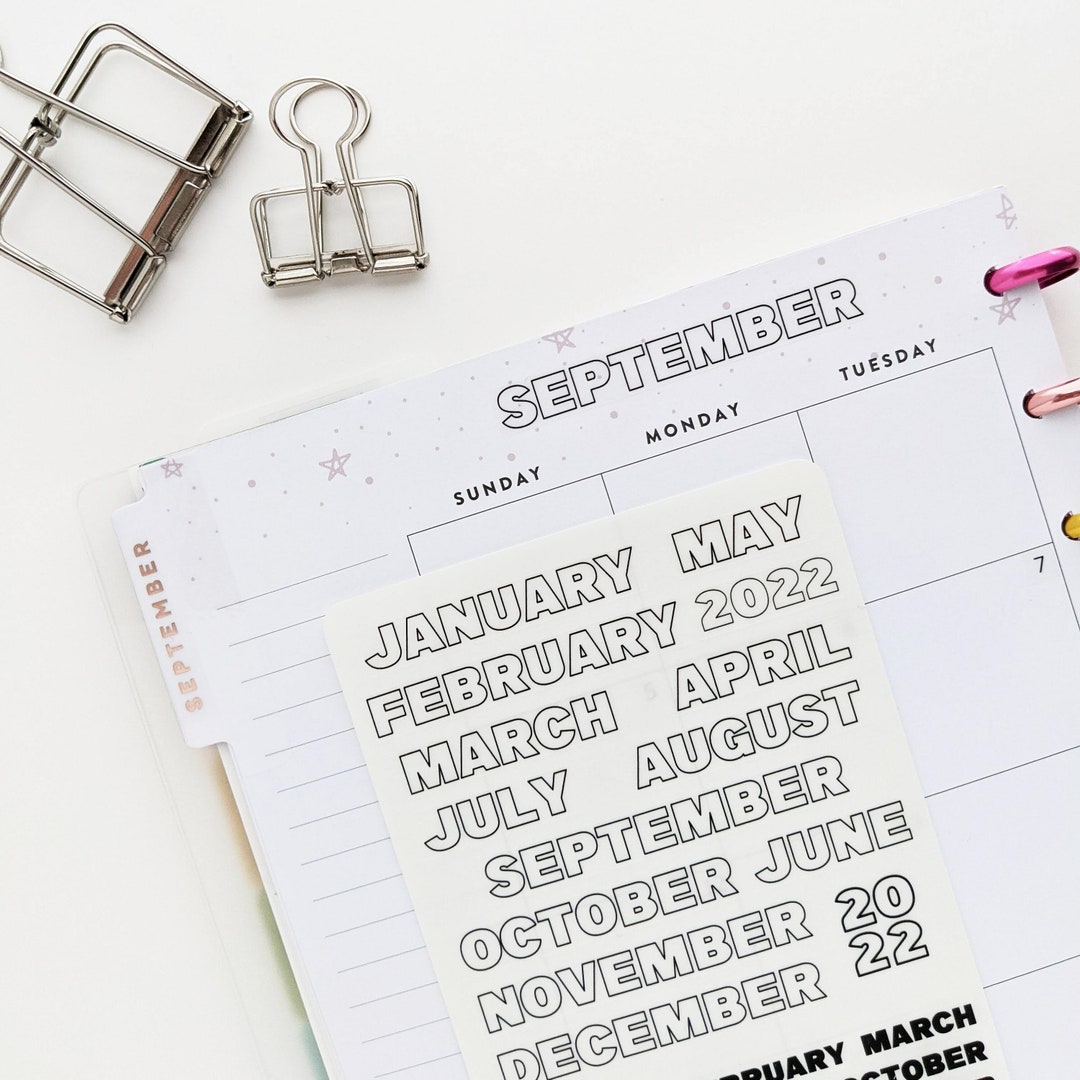 SEPTEMBER
SUNDAY MONDAY TUESDAY
SEPTEMBER
7
JANUARY MAY
FEBRUARY 2022
MARCH APRIL
JULY AUGUST
SEPTEMBER
OCTOBER JUNE
NOVEMBER 20
22
DECEMBER
MARCH